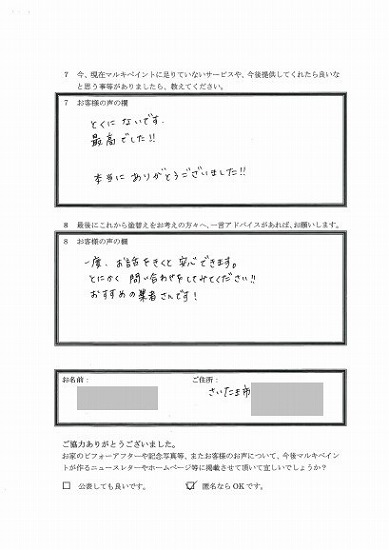 ７ 今、現在マルキペイントに足りていないサービスや、今後提供してくれたら良いな
と思う事等がありましたら、教えてください。
７ お客様の声の欄
とくに ないです.
最高でした!!
本当に ありがとうございました!!
８ 最後にこれから塗替えをお考えの方々へ、一言アドバイスがあれば、お願いします。
８ お客様の声の欄
一度、お話をきくと 安心できます。
とにかく 問い合わせをしてみてください!!
おすすめの業者さんです!
お名前： ご住所：
さいたま市
ご協力ありがとうございました。
お家のビフォーアフターや記念写真等、またお客様のお声について、今後マルキペイン
トが作るニュースレターやホームページ等に掲載させて頂いて宜しいでしょうか？
□ 公表しても良いです。 ☑ 匿名ならＯＫです。